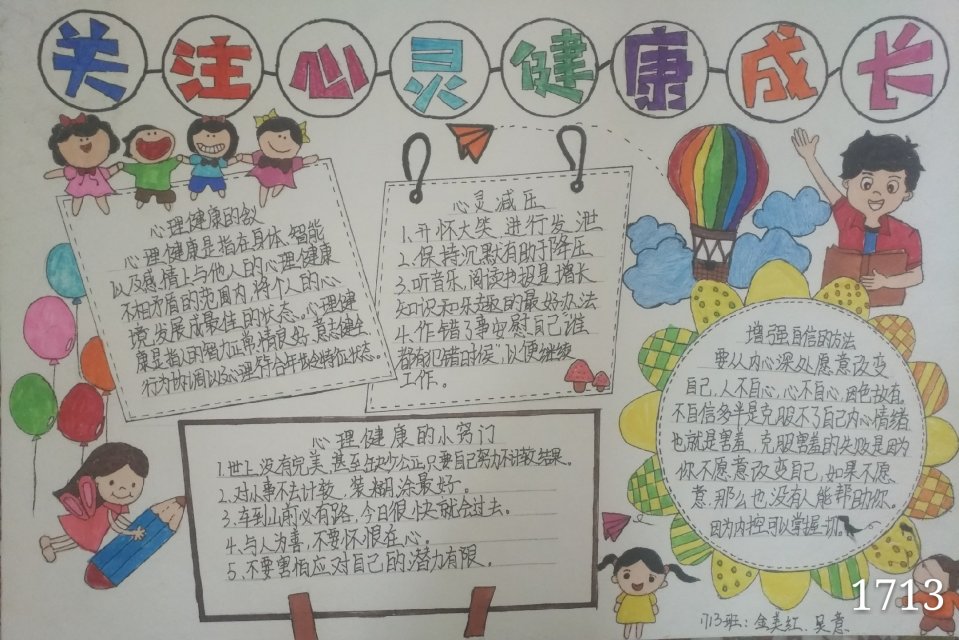 关注心灵健康成长
心理健康的含义
心理健康是指在身体、智能
以及感情上与他人的心理健康
不相矛盾的范围内，将个人的心
境发展成最佳的状态。心理健
康是指人的智力正常，情良好，意志健全
行为协调以及心理符合年龄特征状态。
心灵减压
1.开怀大笑，进行发泄
2.保持沉默有助于降压
3.听音乐，阅读书报是增长
知识和乐趣的最好办法
4.作错了事安慰自己“谁
都有犯错时候”以便继续
工作。
心理健康的小窍门
1.世上没有完美，甚至缺少公正，只要自己努力不计较结果。
2.对小事不去计较，装糊涂最好。
3.车到山前必有路，今日很快就会过去。
4.与人为善，不要怀恨在心。
5.不要害怕应对自己的潜力有限。
增强自信的方法
要从内心深处愿意改变
自己，人不自心，心不自心，因色故有。
不自信多半是克服不了自己内心情绪
也就是害羞，克服害羞的失败是因为
你不愿意改变自己，如果不愿
意，那么也没有人能帮助你。
因为内控可以掌握一切。
1713班：金美红、吴意
1713